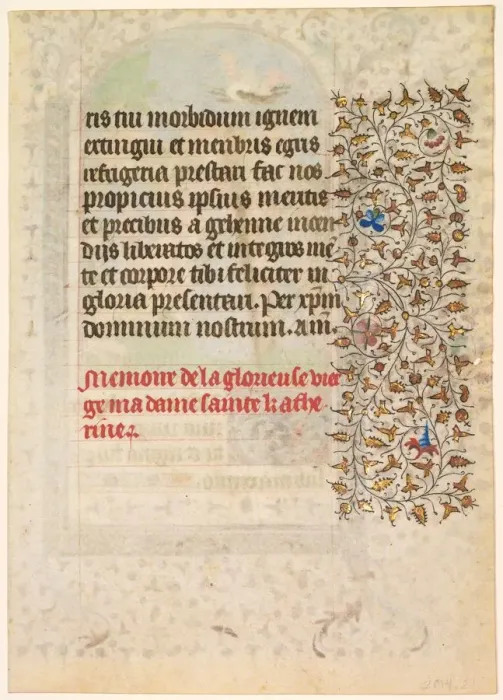 ris tui morbidum ignem
extingui et menbris egris
refugeria prestari fac nos
propicius ipsius meritis
et precibus a gehenne incen
diis liberatos et integros me
te et corpore tibi feliciter in
gloria presentari. Per xp̄m
dominum nostrum. am̄.
Memoire de la glorieuse vier
ge madame sainte kathe
rine.